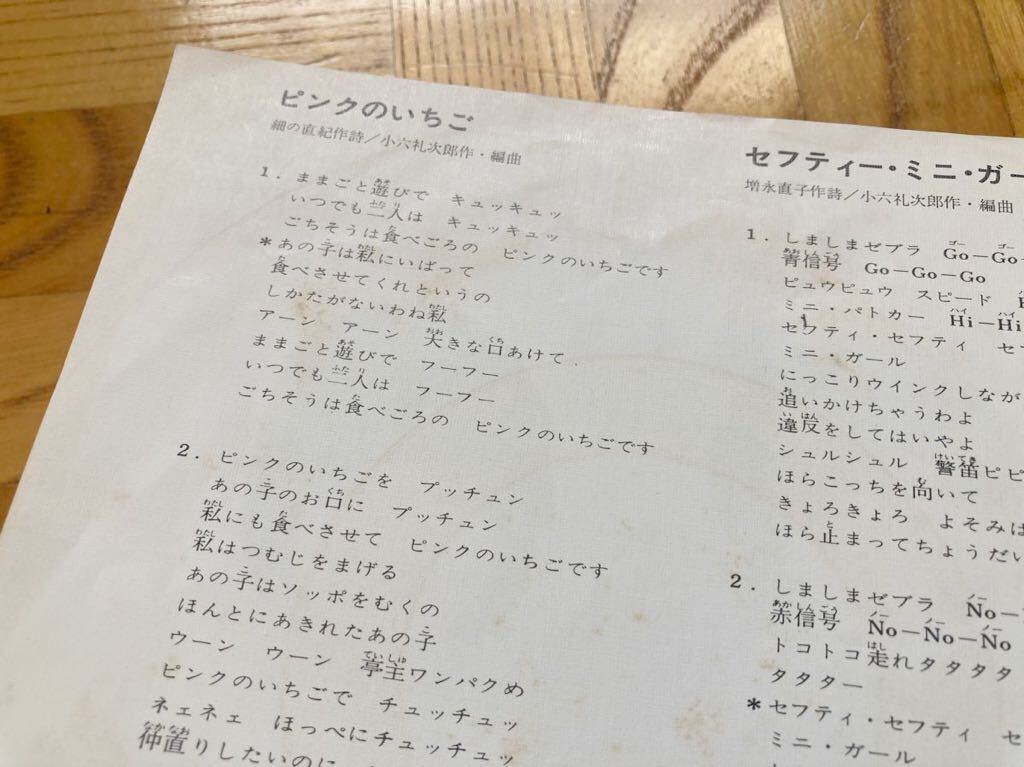 ピンクのいちご
細の直紀作詩／小六礼次郎作・編曲
1. ままごと遊びで キュッキュッ
いつでも二人は キュッキュッ
ごちそうは食べごろの ピンクのいちごです
*あの子は私にいばって
食べさせてくれというの
しかたがないわね私
アーン アーン 大きな口あけて
ままごと遊びで フーフー
いつでも二人は フーフー
ごちそうは食べごろの ピンクのいちごです
2. ピンクのいちごを プッチュン
あの子のお口に プッチュン
私にも食べさせて ピンクのいちごです
私はつむじをまげる
あの子はソッポをむくの
ほんとにあきれたあの子
ウーン ウーン 亭主ワンパクめ
ピンクのいちごで チュッチュッ
ネェネェ ほっぺにチュッチュッ
仲直りしたいのに
セフティー・ミニ・ガー
増永直子作詩／小六礼次郎作・編曲
1. しましまゼブラ Go－Go－
青信号 Go－Go－Go
ピュウピュウ スピード
ミニ・パトカー Hi－Hi
セフティ・セフティ セフ
ミニ・ガール
にっこりウインクしなが
追いかけちゃうわよ
違反をしてはいやよ
シュルシュル 警笛ピピ
ほらこっちを向いて
きょろきょろ よそみは
ほら止まってちょうだい
2. しましまゼブラ No－
赤信号 No－No－No
トコトコ走れタタタタ
タタター
*セフティ・セフティ セ
ミニ・ガール